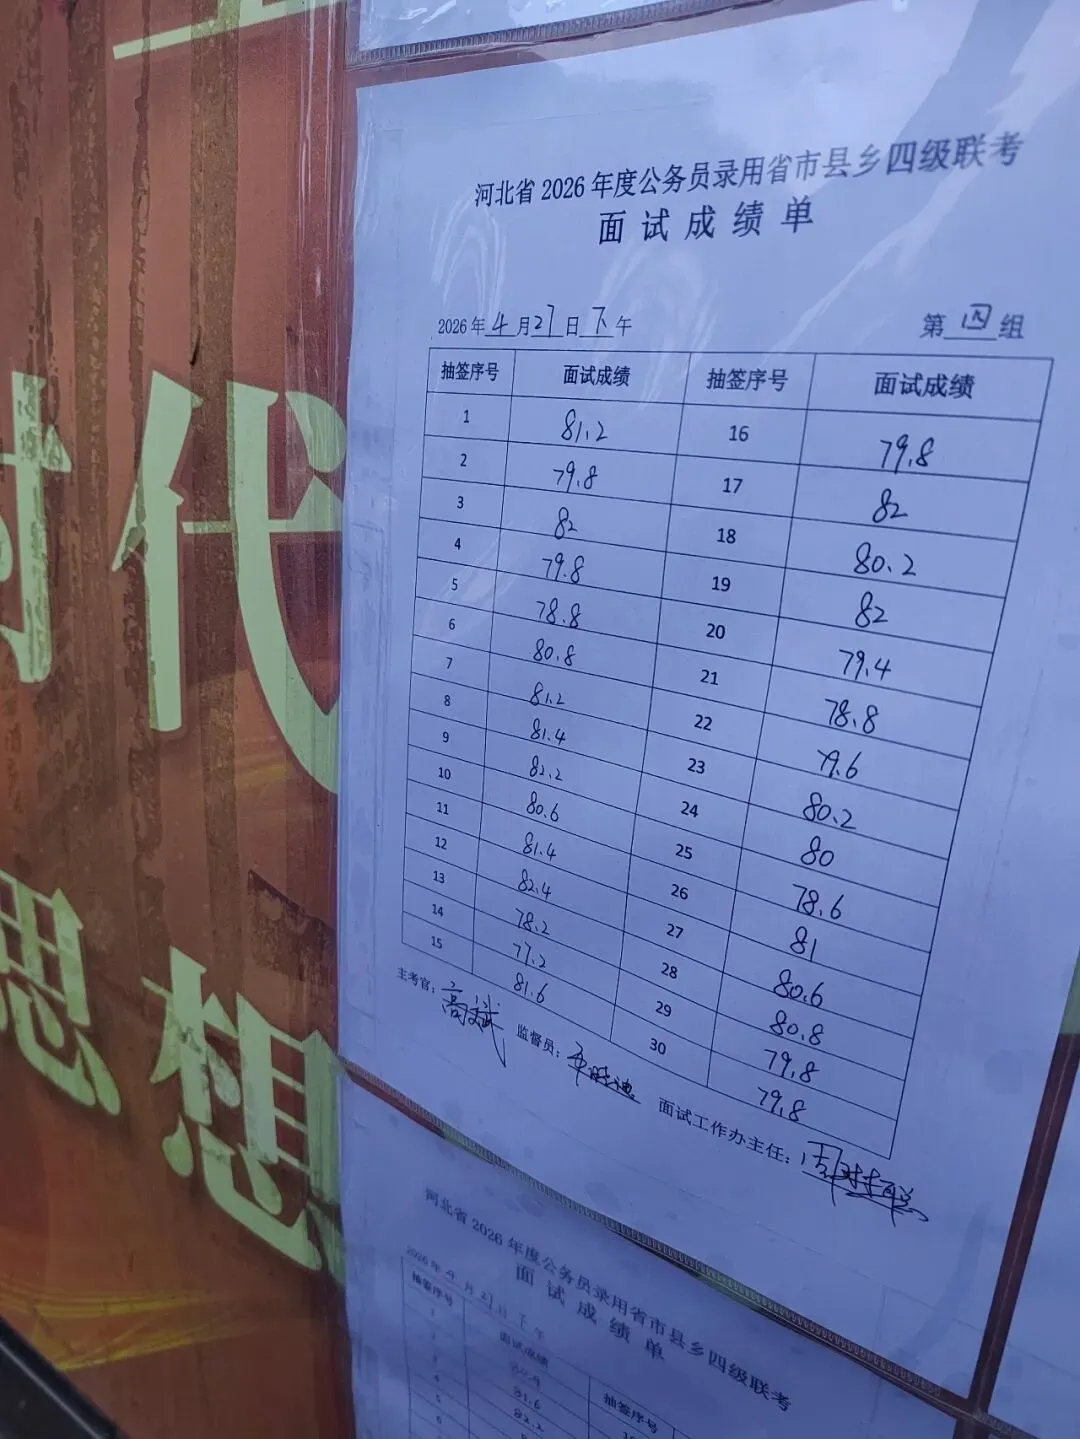 时代
思想
河北省2026年度公务员录用省市县乡四级联考
面试成绩单
2026年4月27日下午 第四组
抽签序号 面试成绩 抽签序号 面试成绩
1 81.2 16 79.8
2 79.8 17 82
3 82 18 80.2
4 79.8 19 82
5 78.8 20 79.4
6 80.8 21 78.8
7 81.2 22 79.6
8 81.4 23 80.2
9 82.2 24 80
10 80.6 25 78.6
11 81.4 26 81
12 82.4 27 80.6
13 78.2 28 80.8
14 77.2 29 79.8
15 81.6 30 79.8
主考官：高斌 监督员： 面试工作办主任：
河北省2026年度公务员录用省市县乡四级联考
面试成绩单
2026年4月27日下午
抽签序号 面试成绩 抽签序号
1
2
3 81.6
4 82.2
5
6